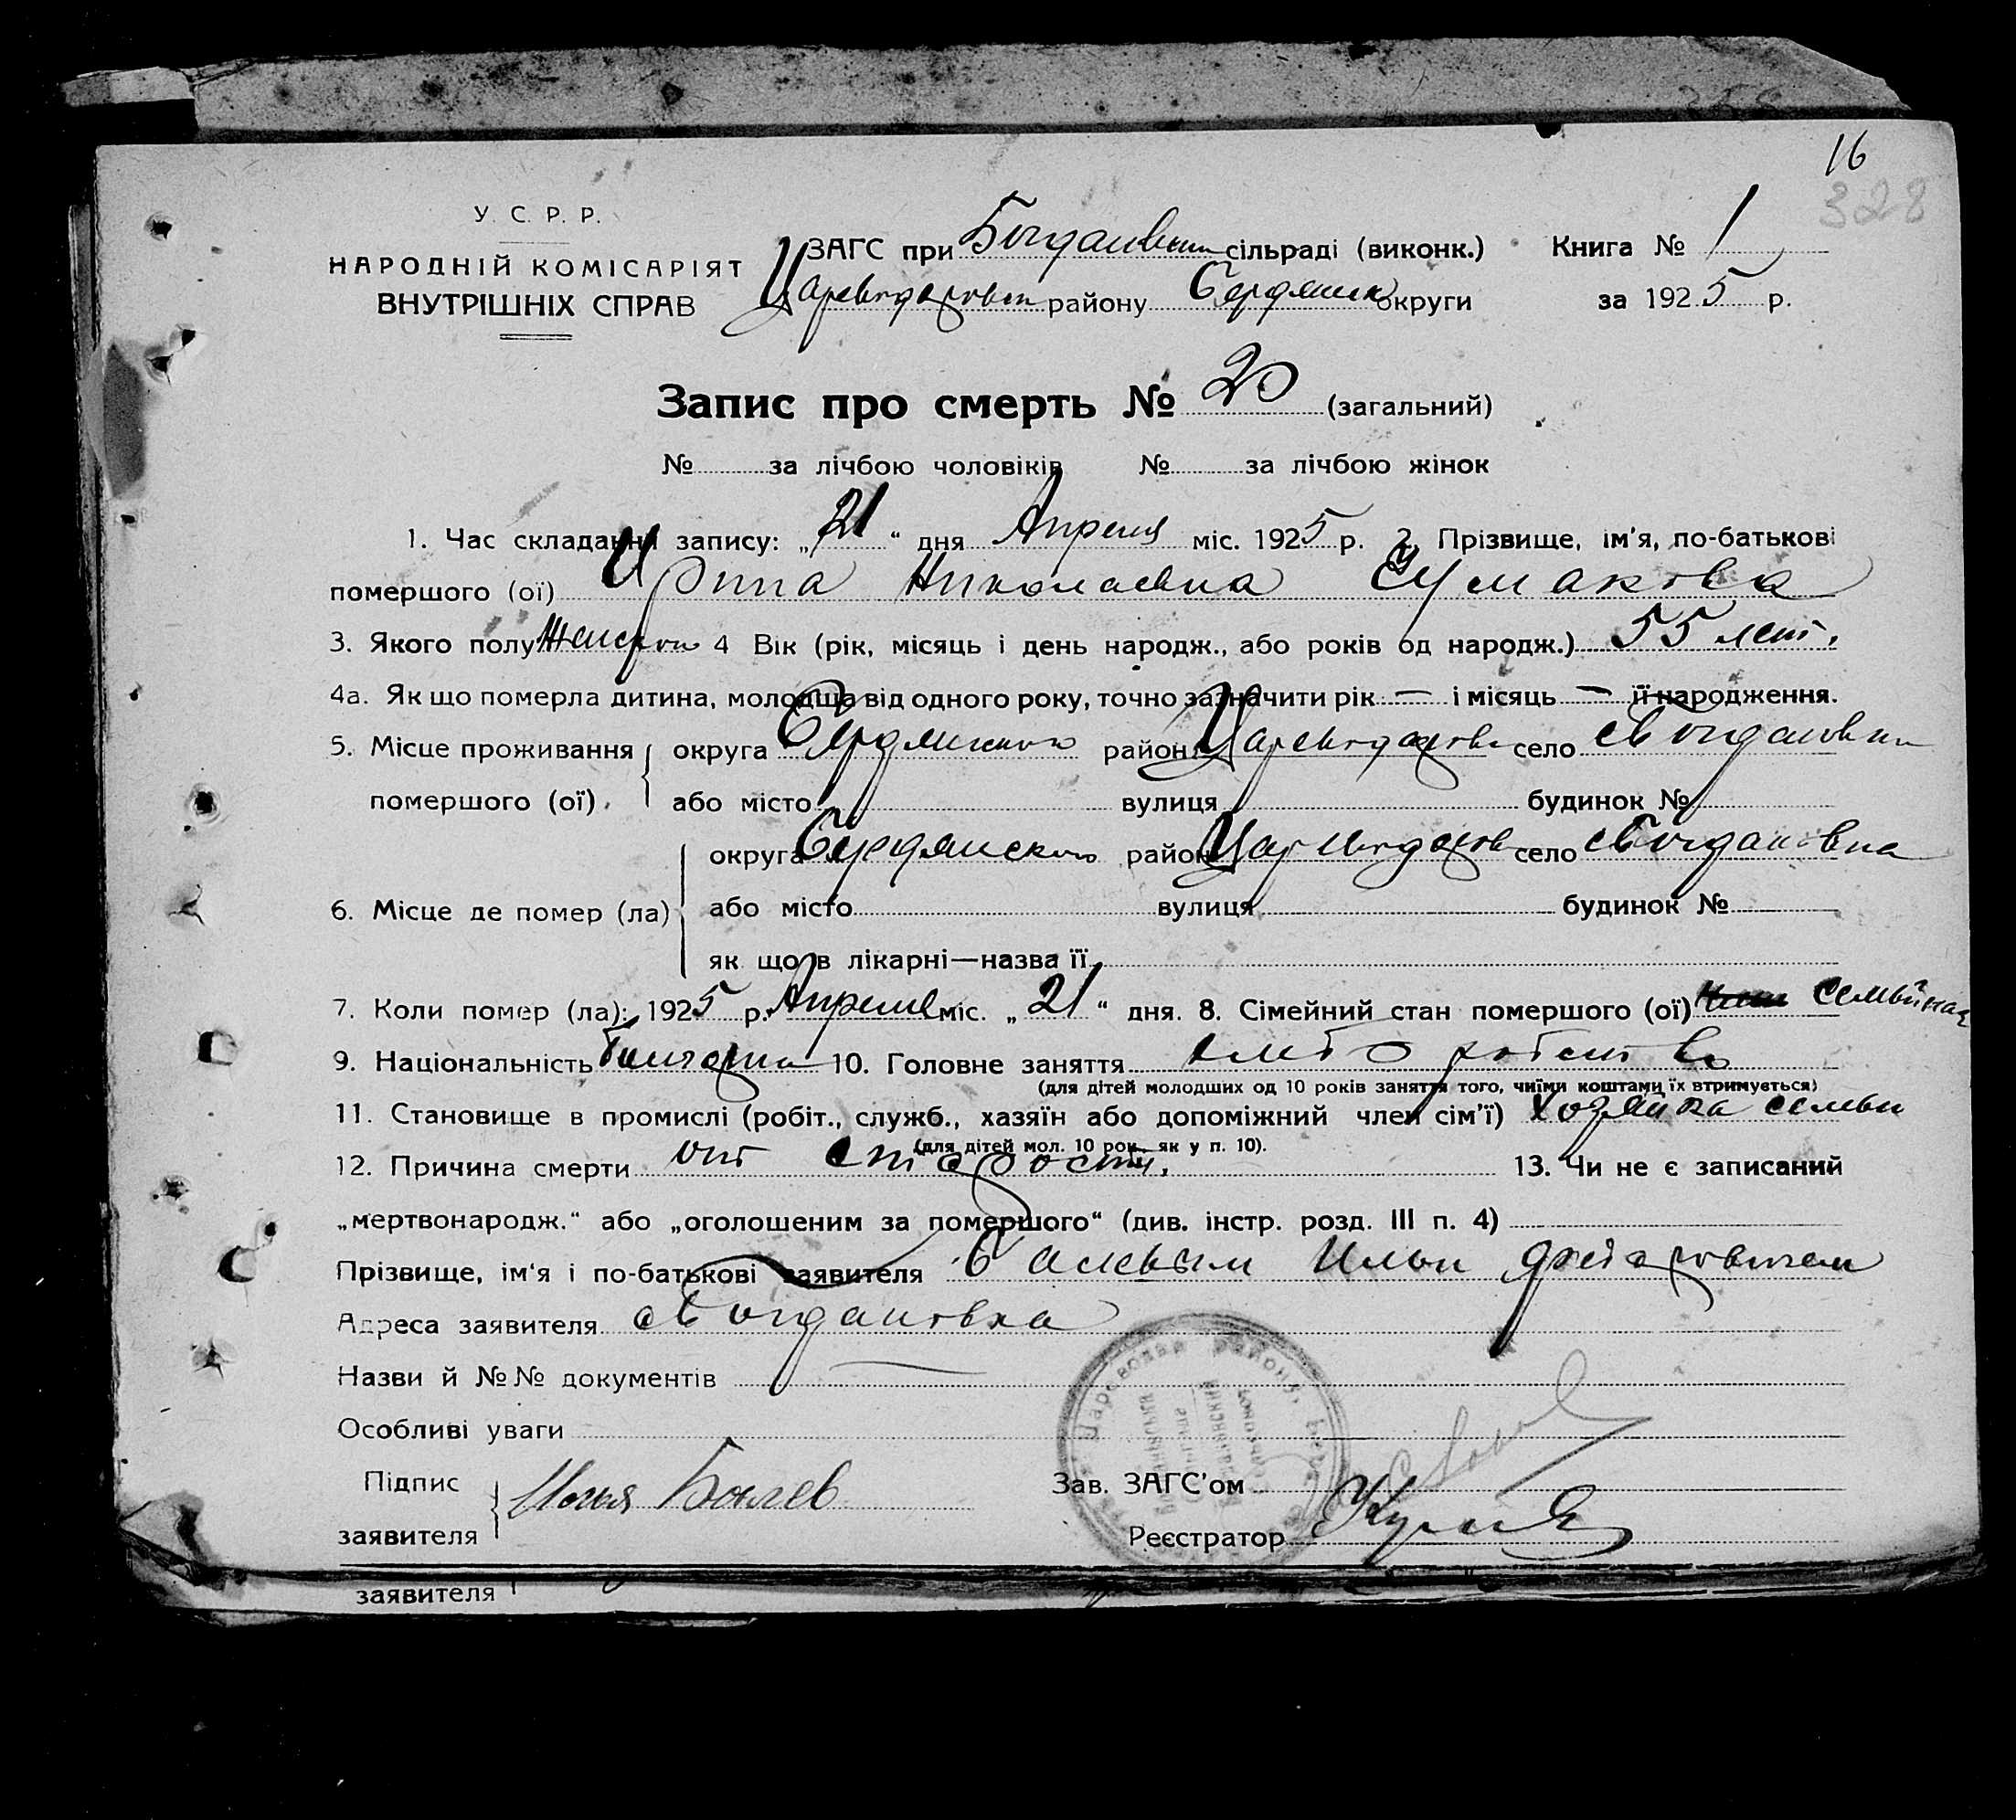 16
328
У. С. Р. Р.
НАРОДНІЙ КОМІСАРІЯТ
ВНУТРІШНІХ СПРАВ
ЗАГС при Богдановск сільраді (виконк.) Книга № 1
Цареводаровск району Бердянск округи за 1925 р.
Запис про смерть № 20 (загальний)
№ за лічбою чоловіків № за лічбою жінок
1. Час складання запису: „21“ дня Апреля міс. 1925 р. 2. Прізвище, ім'я, по-батькові
помершого (ої) Ирина Николаевна Чумакова
3. Якого полу Женскои 4 Вік (рік, місяць і день народж., або років од народж.) 55 лет.
4а. Як що померла дитина, молодша від одного року, точно зазначити рік — і місяць — її народження.
5. Місце проживання округа Бердянского район село Богдановка
помершого (ої) або місто вулиця будинок №
округа Бердянского район село Богдановка
6. Місце де помер (ла) або місто вулиця будинок №
як що в лікарні—назва її
7. Коли помер (ла): 1925 р. Апреля міс. „21“ дня. 8. Сімейний стан помершого (ої) Семейная
9. Національність Болгарка 10. Головне заняття хлеборобство
(для дітей молодших од 10 років заняття того, чиїми коштами їх втримується)
11. Становище в промислі (робіт., служб., хазяїн або допоміжний член сім'ї) хозяйка семьи
(для дітей мол. 10 рок. як у п. 10).
12. Причина смерти от старости. 13. Чи не є записаний
„мертвонародж.“ або „оголошеним за помершого“ (див. інстр. розд. III п. 4)
Прізвище, ім'я і по-батькові заявителя Ильи
Адреса заявителя Богдановка
Назви й №№ документів —
Особливі уваги
Підпис
заявителя Илья
Зав. ЗАГС'ом
Реєстратор
заявителя